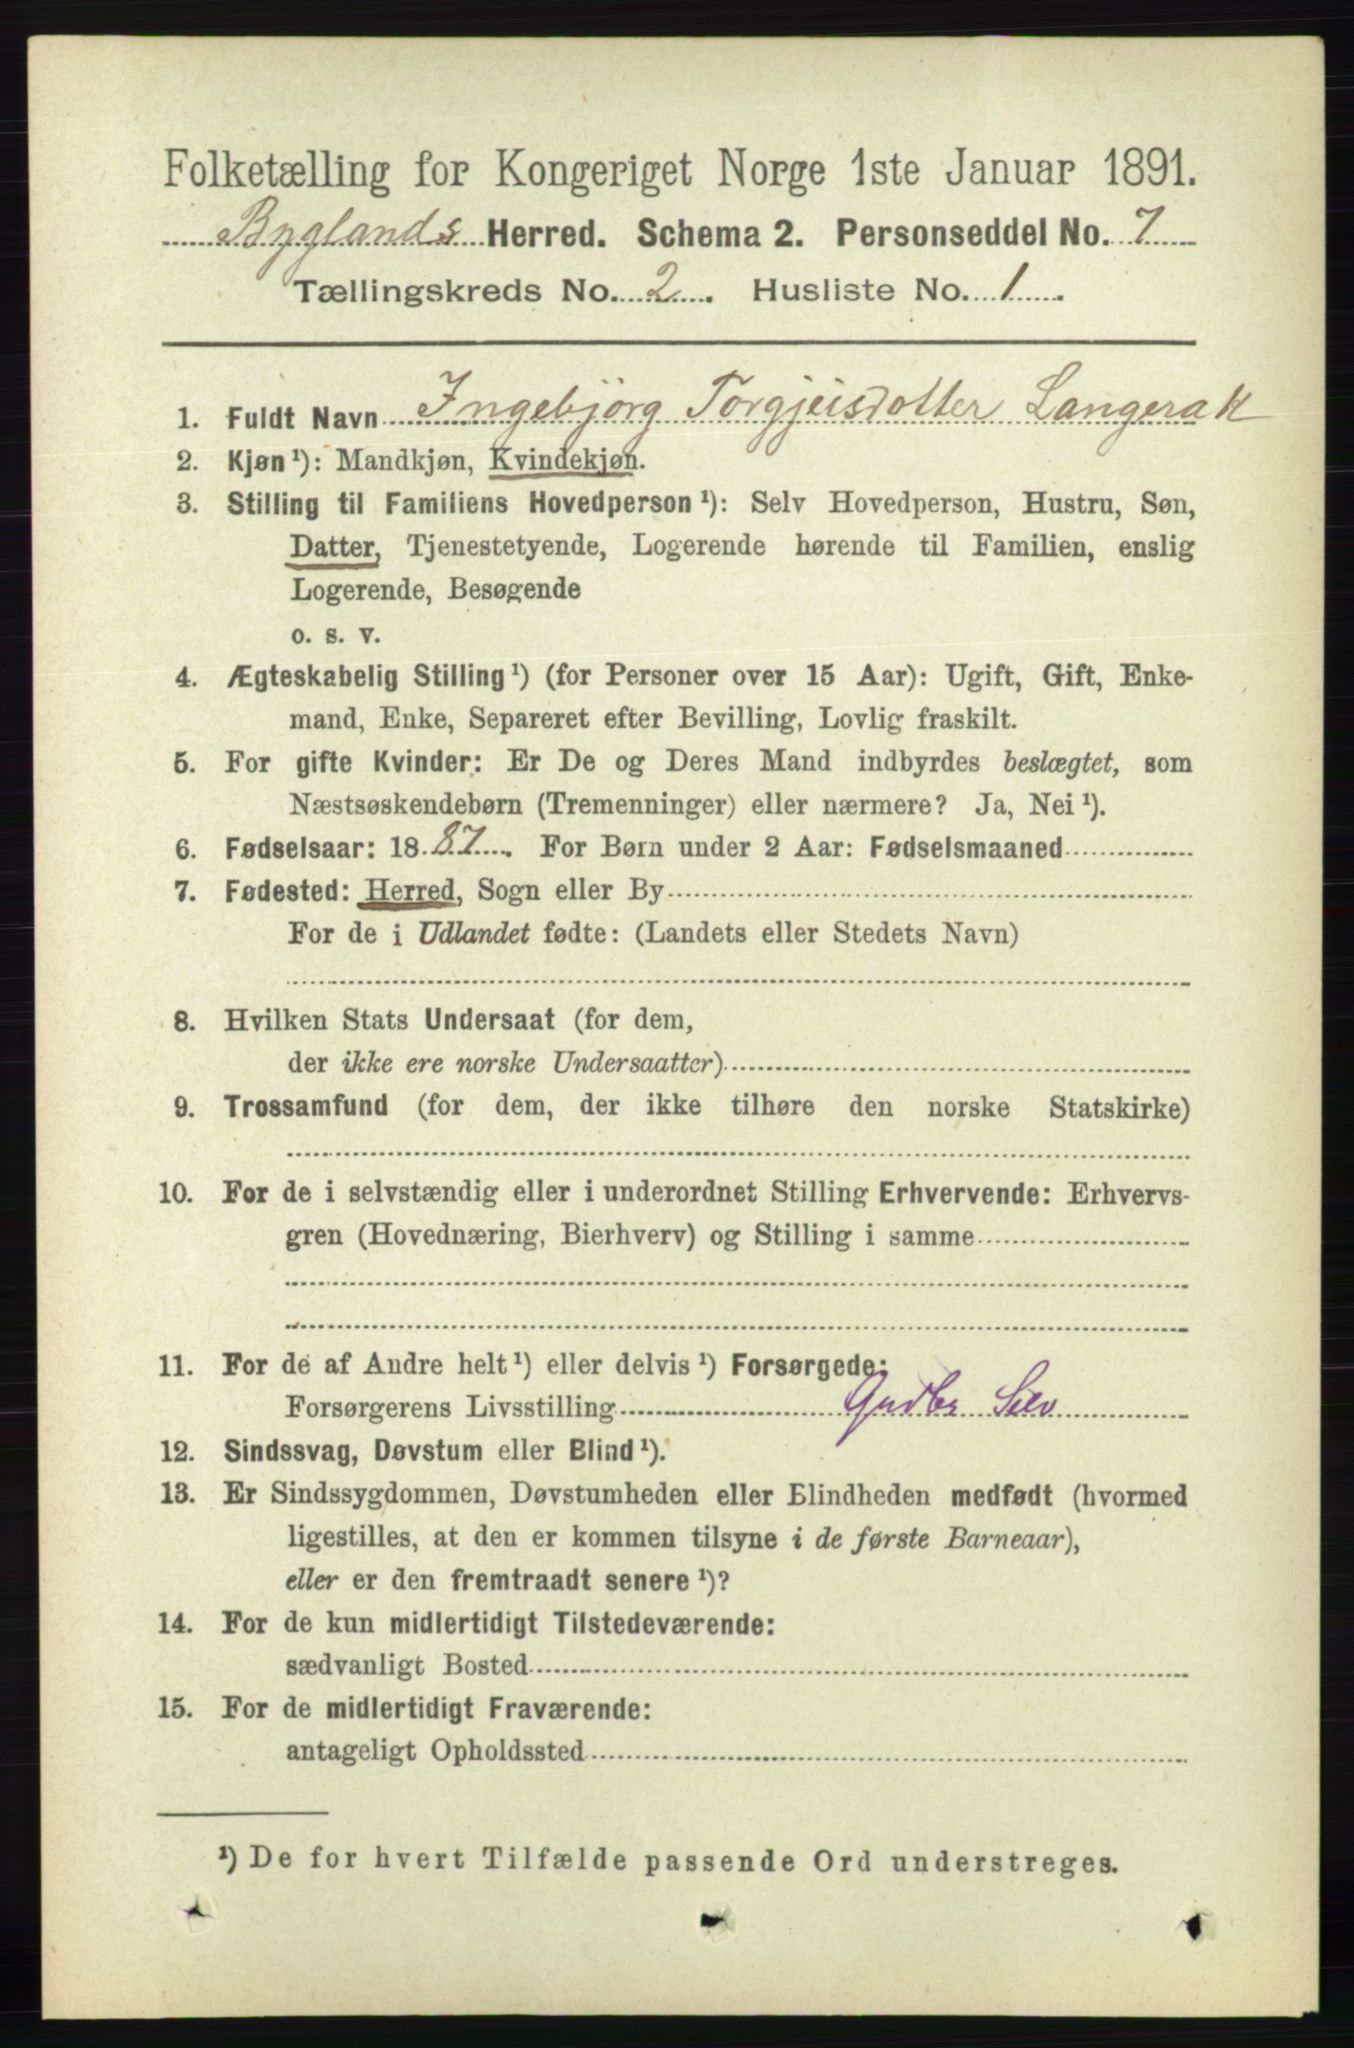 Folketælling for Kongeriget Norge 1ste Januar 1891.
Byglands Herred. Schema 2. Personseddel No. 7
Tællingskreds No. 2. Husliste No. 1.
1. Fuldt Navn Ingebjörg Torgjeisdotter Langerak
2. Kjøn¹): Mandkjøn, Kvindekjøn.
3. Stilling til Familiens Hovedperson¹): Selv Hovedperson, Hustru, Søn,
Datter, Tjenestetyende, Logerende hørende til Familien, enslig
Logerende, Besøgende
o. s. v.
4. Ægteskabelig Stilling¹) (for Personer over 15 Aar): Ugift, Gift, Enke-
mand, Enke, Separeret efter Bevilling, Lovlig fraskilt.
5. For gifte Kvinder: Er De og Deres Mand indbyrdes beslægtet, som
Næstsøskendebørn (Tremenninger) eller nærmere? Ja, Nei¹).
6. Fødselsaar: 1887. For Børn under 2 Aar: Fødselsmaaned
7. Fødested: Herred, Sogn eller By
For de i Udlandet fødte: (Landets eller Stedets Navn)
8. Hvilken Stats Undersaat (for dem,
der ikke ere norske Undersaatter)
9. Trossamfund (for dem, der ikke tilhøre den norske Statskirke)
10. For de i selvstændig eller i underordnet Stilling Erhvervende: Erhvervs-
gren (Hovednæring, Bierhverv) og Stilling i samme
11. For de af Andre helt¹) eller delvis¹) Forsørgede:
Forsørgerens Livsstilling Gudbr Selv
12. Sindssvag, Døvstum eller Blind¹).
13. Er Sindssygdommen, Døvstumheden eller Blindheden medfødt (hvormed
ligestilles, at den er kommen tilsyne i de første Barneaar),
eller er den fremtraadt senere¹)?
14. For de kun midlertidigt Tilstedeværende:
sædvanligt Bosted
15. For de midlertidigt Fraværende:
antageligt Opholdssted
¹) De for hvert Tilfælde passende Ord understreges.